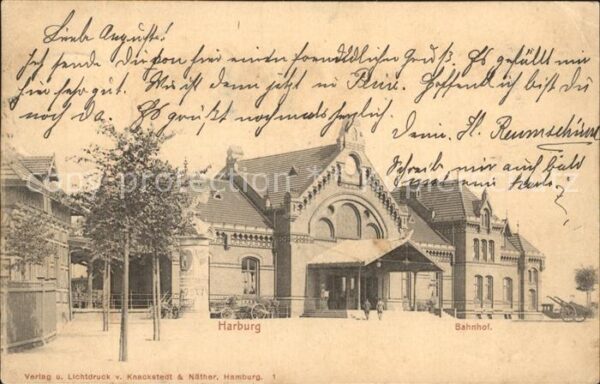 Liebe Auguste!
Ich sende Dir von hier einen freundlichen Gruß. Es gefällt mir
hier sehr gut. Wo ist denn jetzt Hoffentlich bist du
noch da. Es grüßt nochmals herzlich
Deine H.
Schreibe mir auch bald
Harburg
Bahnhof.
Verlag u. Lichtdruck v. Knackstedt & Näther, Hamburg. 1